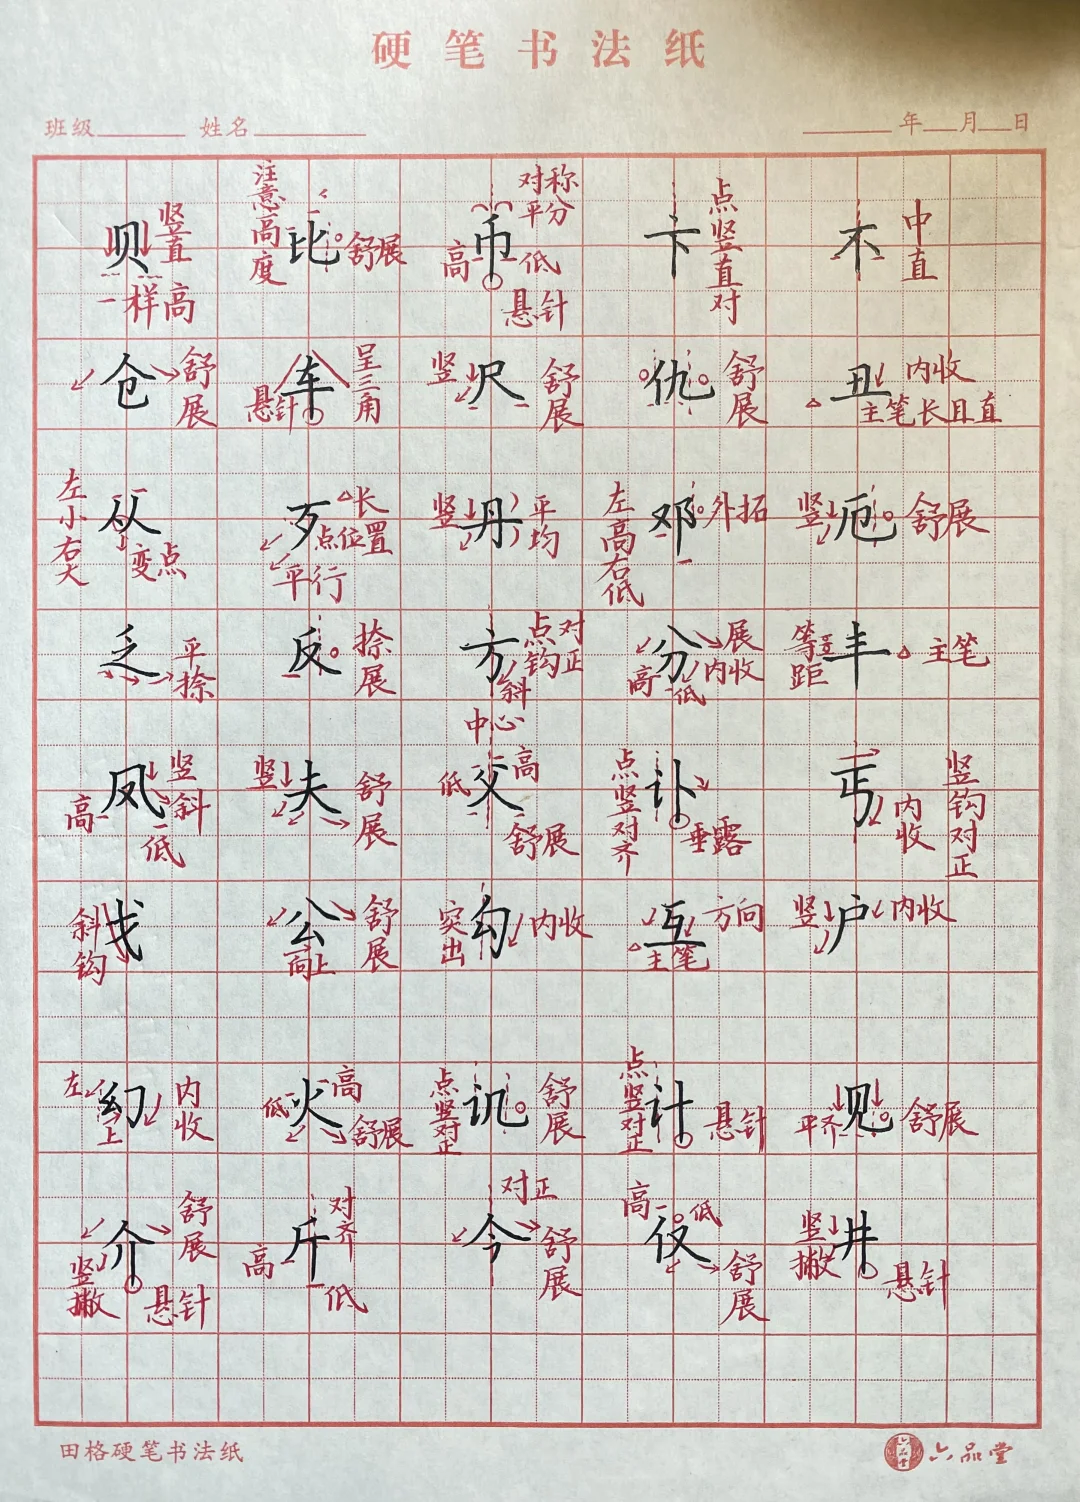 硬笔书法纸
班级 姓名 年 月 日
贝 竖直 一样高
比 注意高度 舒展
币 对称 平分 高 低 悬针
卞 点竖直对
不 中直
仓 舒展
车 呈三角 悬针
尺 竖 舒展
仇 舒展
丑 内收 主笔长且直
从 左小右大 变点
歹 长 点位置 平行
丹 竖 平均
邓 左高右低 外拓
厄 竖 舒展
乏 平捺
反 捺展
方 点钩对正 斜 中心
分 展 内收 高 低
丰 等距 主笔
凤 竖斜 高 低
夫 竖 舒展
父 低 高 舒展
讣 点竖对齐 垂露
丐 内收 竖钩对正
戈 斜钩
公 舒展 向上
勾 突出 内收
互 方向 主笔
户 竖 内收
幻 左 上 内收
火 低 高 舒展
讥 点竖对正 舒展
计 点竖对正 悬针
见 平齐 舒展
介 舒展 竖撇 悬针
斤 对齐 高 低
今 对正 舒展
仅 高 低 舒展
井 竖撇 悬针
田格硬笔书法纸 六品堂